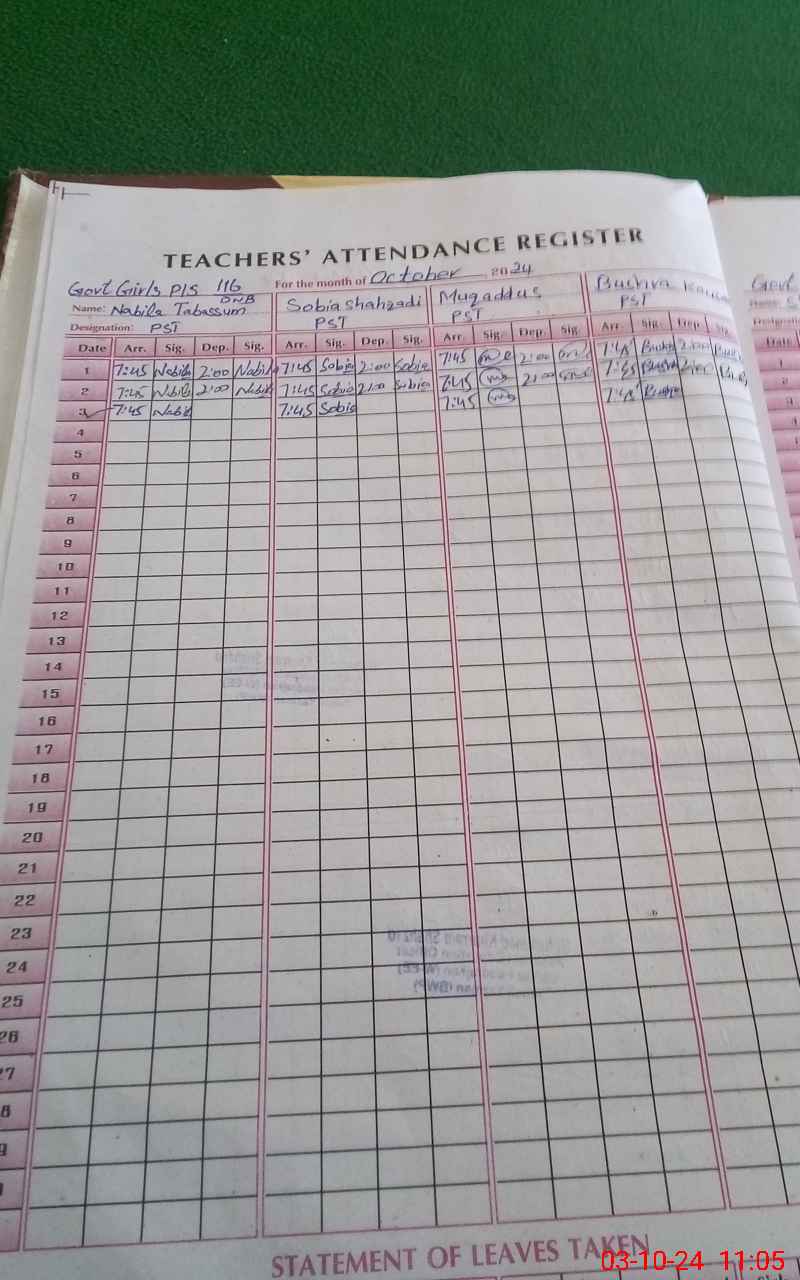 TEACHERS' ATTENDANCE REGISTER
Govt Girls P/S 116 For the month of October 2024
DNB
Name: Nabila Tabassum Sobia shahzadi Muqaddus Bushra
Designation: PST PST PST PST
Date Arr. Sig. Dep. Sig. Arr. Sig. Dep. Sig. Arr. Sig. Dep. Sig. Arr. Sig. Dep. Sig.
1 7:45 Nabila 2:00 Nabila 7:45 Sobia 2:00 Sobia 7:45 2:00 7:45 Bushra 2:00
2 7:45 Nabila 2:00 Nabila 7:45 Sobia 2:00 Sobia 7:45 2:00 7:45 Bushra 2:00
3 7:45 Nabila 7:45 Sobia 7:45 7:45 Bushra
4
5
6
7
8
9
10
11
12
13
14
15
16
17
18
19
20
21
22
23
24
25
26
27
STATEMENT OF LEAVES TAKEN
03-10-24 11:05